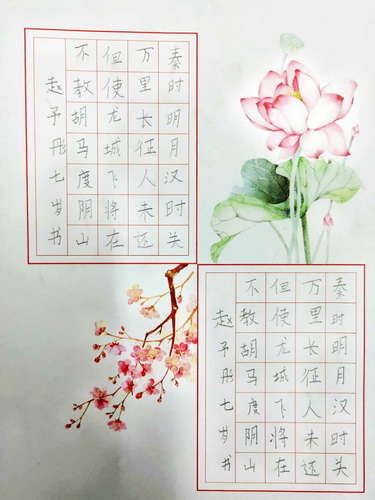 秦时明月汉时关
万里长征人未还
但使龙城飞将在
不教胡马度阴山
赵予彤七岁书
秦时明月汉时关
万里长征人未还
但使龙城飞将在
不教胡马度阴山
赵予彤七岁书